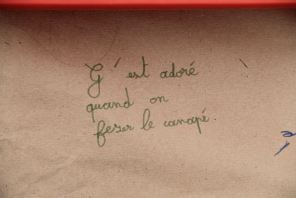 G' est adoré
quand on
feser le canapé.